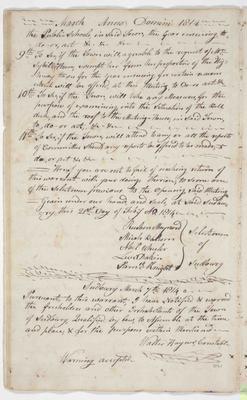 March Anno Domini 1814
the Public Schools in Said Town, the Year ensuing to
do or act &c &c
9th To See if the Town will agreeable to the request of
exempt him from his proportion of the High
way taxes for the Year ensuing for certain reason
which will be offered, at this Meeting to Do or act &c
10th To See if the Town will take any Measures for the
purpose of examining into the Situation of the Bell
deck, and the roof to the Meeting House, in Said Town
to do or act, &c &c
11th To See if the Town will attend to any or all the reports
of Committees Should any reports be offered to be made, &
do, or act &c &c
Here you are not to fail of making return of
this warrant with your doings thereon, to Some one
of the Selectmen previous to the opening Said Meeting
Given under our hand and seals, at Said Sudbury
this 21st Day of Feby AD 1814
Reuben Haynes
Selectmen
of
Sudbury
Sudbury March 7th 1814
Pursuant to this warrant, I have Notified & warned
the freeholders and other Inhabitants of the Town
of Sudbury Qualified by law, to Assemble at the time
and place, & for the Purposes within Mentioned
Walter Haynes Constable
Warning accepted